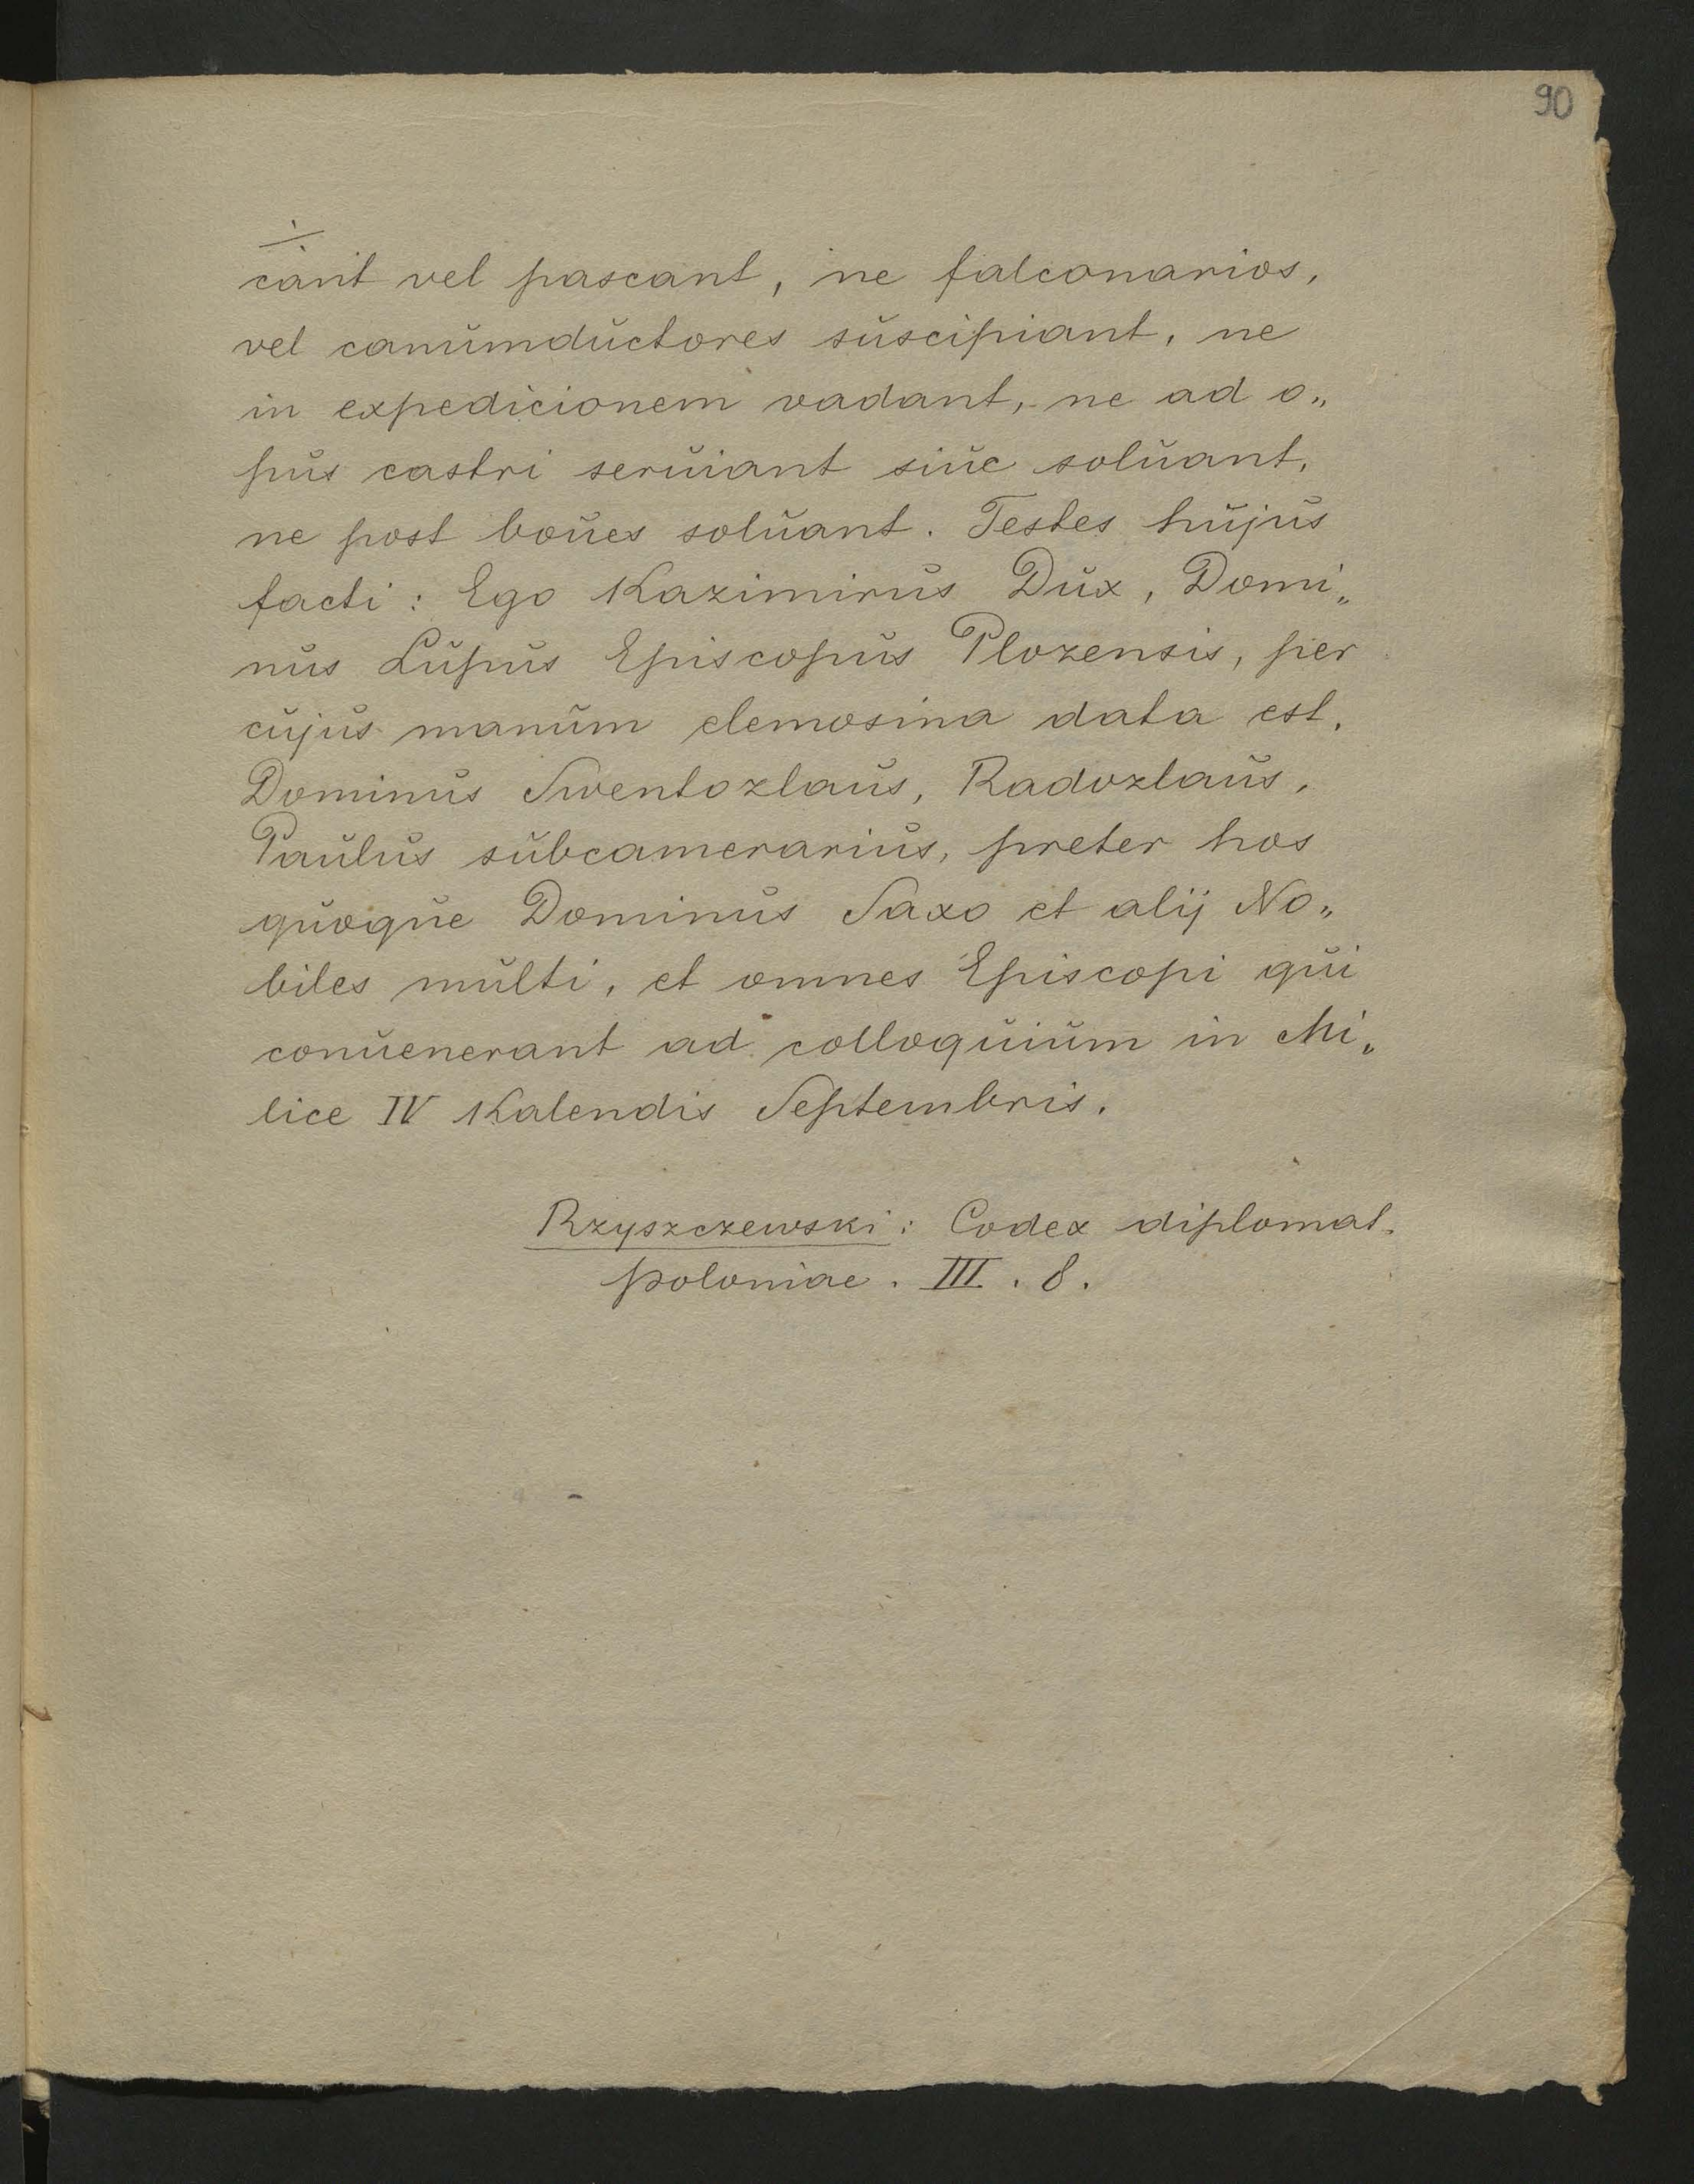 90
÷
cant vel pascant, ne falconarios,
vel canumductores suscipiant, ne
in expedicionem vadant, ne ad o„
pus castri seruiant siue soluant,
ne post boues soluant. Testes hujus
facti: Ego Kazimirus Dux, Domi„
nus Lupus Episcopus Plozensis, per
cujus manum elemosina data est,
Dominus Swentozlaus, Radozlaus,
Paulus subcamerarius, preter hos
quoque Dominus Saxo et alij No„
biles multi, et omnes Episcopi qui
conuenerant ad colloquium in Mi„
lice IV Kalendis Septembris.
Rzyszczewski: Codex diplomat.
Poloniae. III. 8.